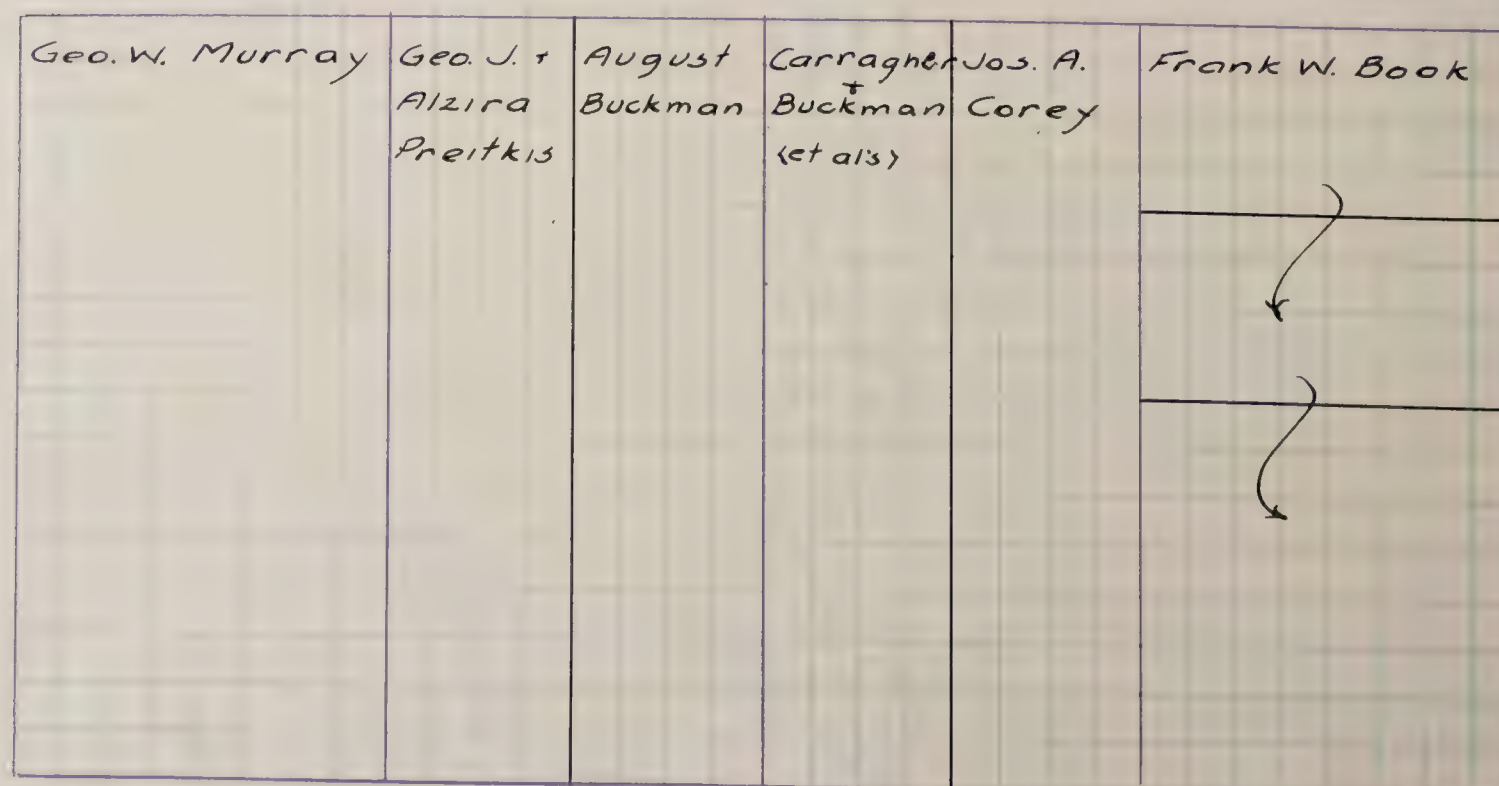 Geo. W. Murray
Geo. J. +
Alzira
Preitkis
August
Buckman
Carragher
+
Buckman
(et al's)
Jos. A.
Corey
Frank W. Book